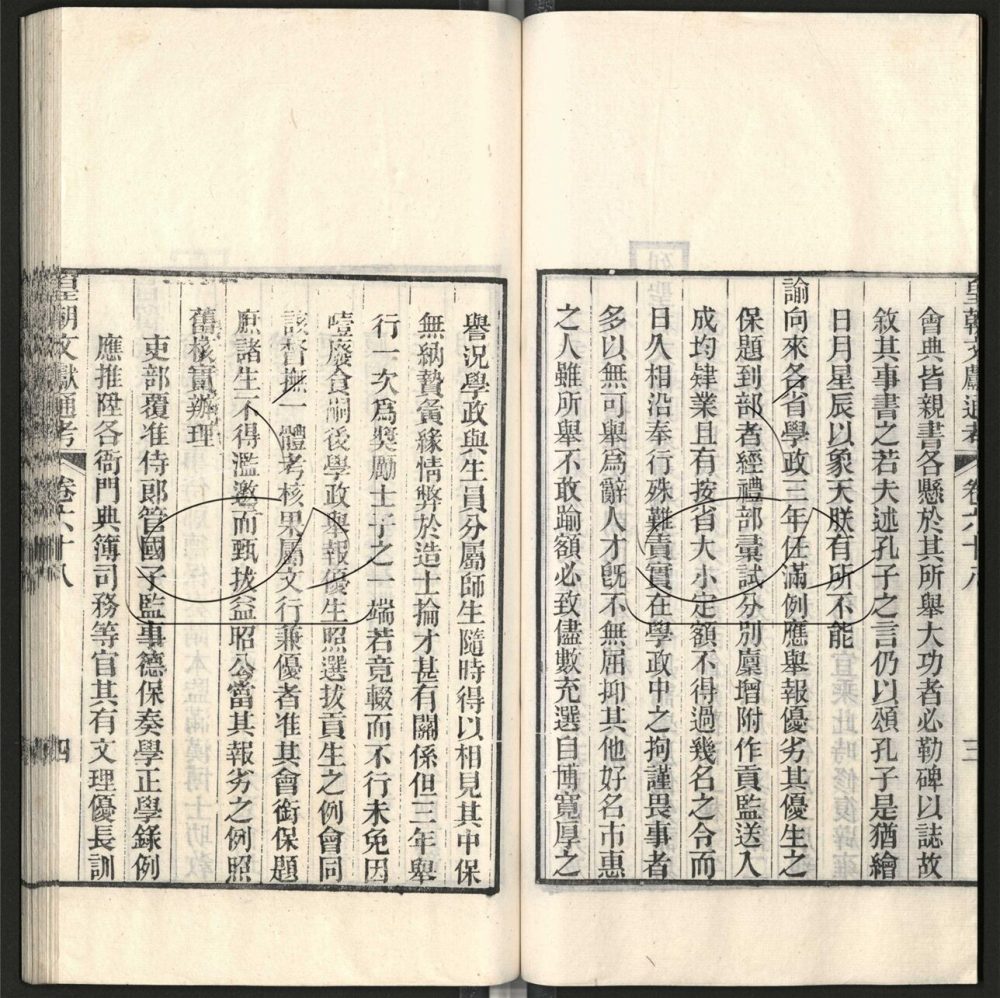 皇朝文獻通考 卷六十八 三
會典皆親書各懸於其所舉大功者必勒碑以誌故
敘其事書之若夫述孔子之言仍以頌孔子是猶繪
日月星辰以象天朕有所不能
諭向來各省學政三年任滿例應舉報優劣其優生之
保題到部者經禮部彙試分別廩增附作貢監送入
成均肄業且有按省大小定額不得過幾名之令而
日久相沿奉行殊難責實在學政中之拘謹畏事者
多以無可舉為辭人才旣不無屈抑其他好名市惠
之人雖所舉不敢踰額必致儘數充選自博寬厚之
譽況學政與生員分屬師生隨時得以相見其中保
無納贄夤緣情弊於造士掄才甚有關係但三年舉
行一次為奬勵士子之一端若竟輟而不行未免因
噎廢食嗣後學政舉報優生照選拔貢生之例會同
該督撫一體考核果屬文行兼優者准其會銜保題
庶諸生不得濫邀而甄拔益昭公當其報劣之例照
舊核實辦理
吏部覆准侍郎管國子監事德保奏學正學錄例
應推陞各衙門典簿司務等官其有文理優長訓
皇朝文獻通考 卷六十八 四